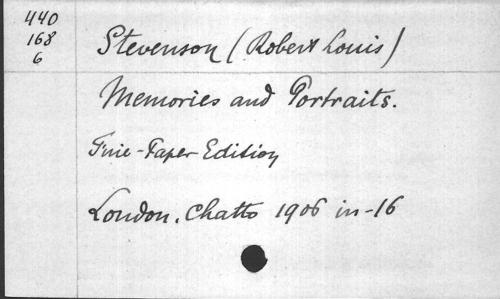 440
168
6
Stevenson (Robert Louis)
Memories and Portraits.
Fine-Paper Edition
London. Chatto 1906 in-16